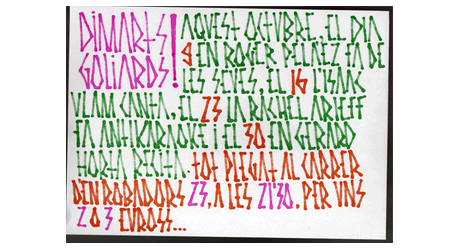 DIMARTS
GOLIARDS!
AQUEST OCTUBRE, EL DIA
9 EN ROGER PELÁEZ FA DE
LES SEVES, EL 16 L'ISAAC
ULAM CANTA, EL 23 LA RACHEL ARIEFF
FA ANTIKARAOKE I EL 30 EN GERARD
HORTA RECITA. TOT PLEGAT AL CARRER
D'EN ROBADORS 23, A LES 21'30. PER UNS
2 O 3 EUROSS...